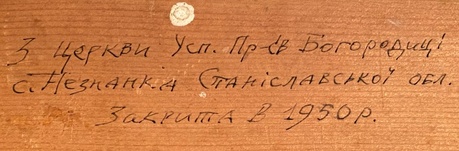 З Церкви Усп. Пр-єв Богородиці
с. Незнанк.а Станіславської обл.
Закрита в 1950 р.